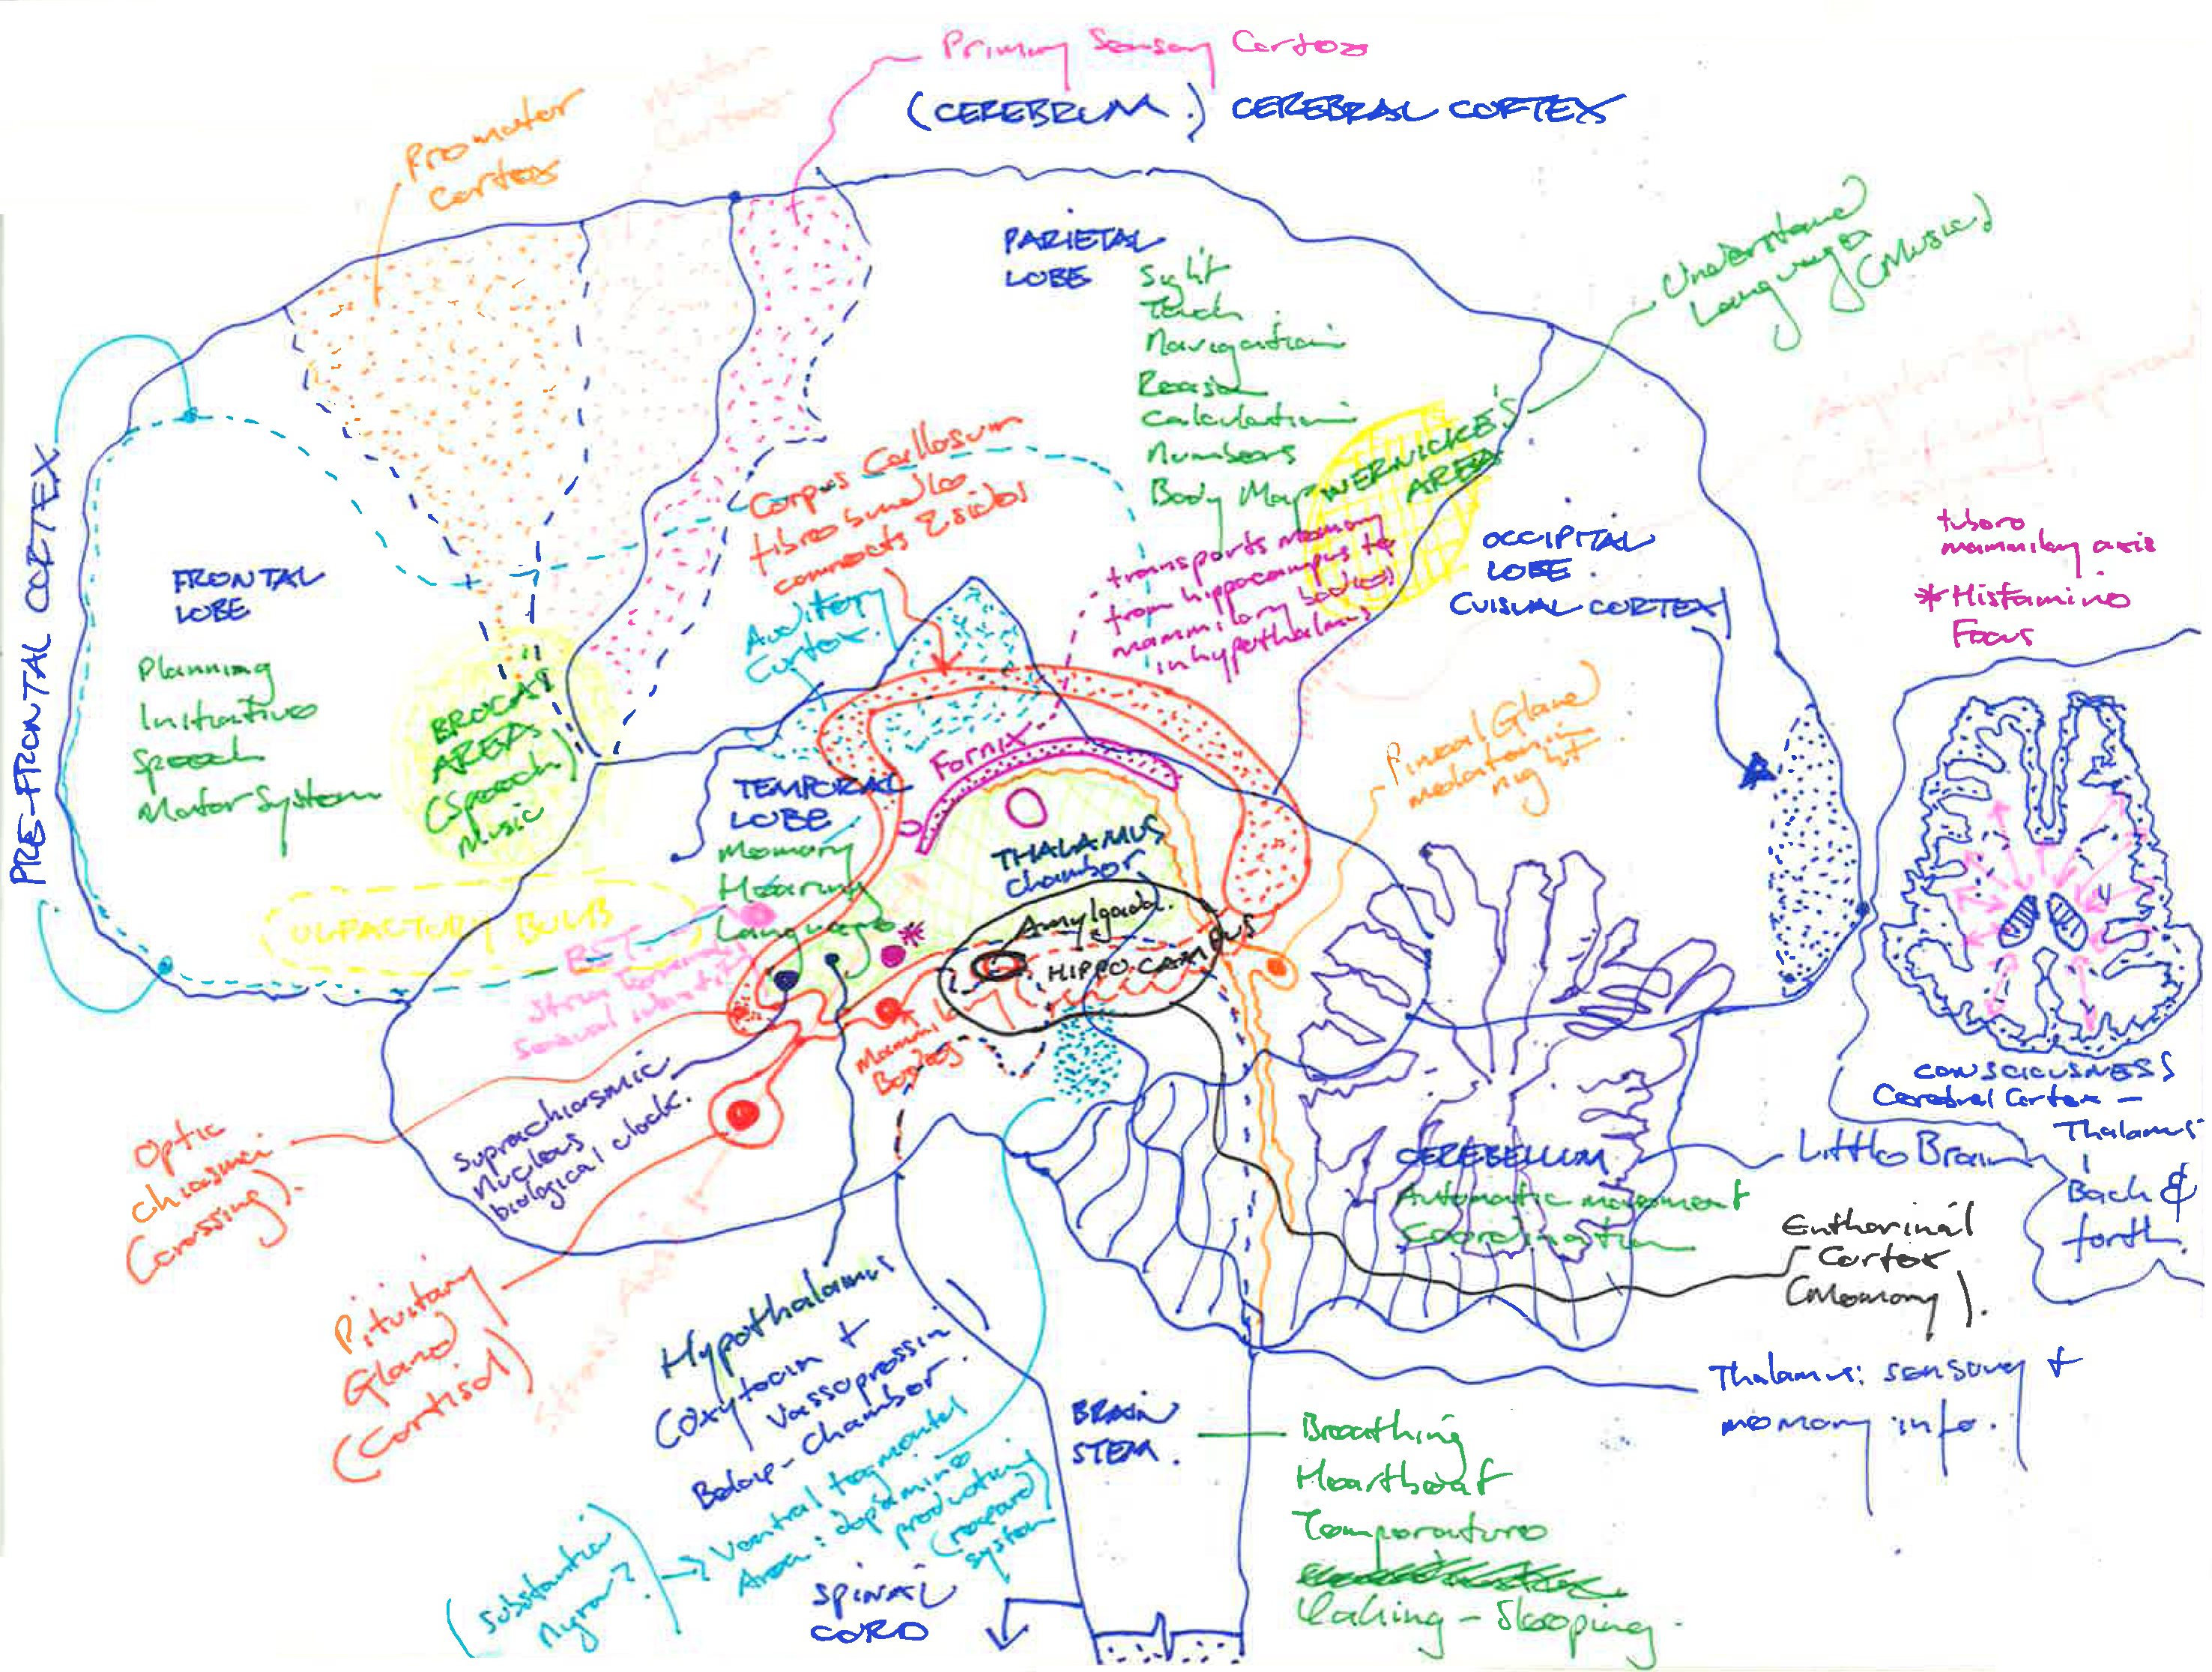 Primary Sensory Cortex
(CEREBRUM.) CEREBRAL CORTEX
Motor
Cortex
Promotor
Cortex
PARIETAL
LOBE
Sight
Touch
Navigation
Reason
Calculation
Numbers
Body Map
WERNICKE'S
AREA
Understand
Language
(Music)
Angular Gyrus
PRE-FRONTAL CORTEX
FRONTAL
LOBE
Planning
Initiative
Speech
Motor System
BROCA'S
AREA
(Speech)
Music
Corpus Callosum
fibre bundle
connects 2 sides
Auditory
Cortex.
transports memory
from hippocampus to
mammilary bodies
in hypothalamus
OCCIPITAL
LOBE.
(VISUAL CORTEX)
tubero
mammilary axis
* Histamine
Focus
Fornix
TEMPORAL
LOBE
Memory
Hearing
Language
THALAMUS
Chamber
Pineal Gland
melatonin
night.
OLFACTORY BULB
BST
stria terminalis
sexual identity
Amylgada.
HIPPOCAMPUS
Mammilary
Bodies
Optic
chiasmei
(crossing).
suprachiasmic
nucleus
biological clock.
Pituitary
Gland
(Cortisol)
Stress Axis
Hypothalamus
(Oxytocin +
Vassopressin
Below-Chamber.
CEREBELLUM
Automatic movement
Coordination
Little Brain
CONSCIOUSNESS
Cerebral Cortex -
Thalamus
Back &
forth.
Enthorinal
Cortex
(Memory).
Thalamus: sensory +
memory info.
BRAIN
STEM.
Breathing
Heartbeat
Temperature
Waking - Sleeping.
(Substantia
Nigra?)
Ventral tegmental
Area: dopamine
producing
(reward)
system
SPINAL
CORD